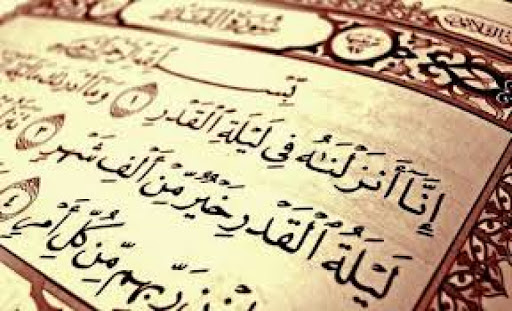 سورة القدر
بِسْمِ ٱللَّهِ ٱلرَّحْمَٰنِ ٱلرَّحِيمِ
إِنَّآ أَنزَلْنَٰهُ فِى لَيْلَةِ ٱلْقَدْرِ ١ وَمَآ أَدْرَىٰكَ مَا لَيْلَةُ
لَيْلَةُ ٱلْقَدْرِ خَيْرٌ مِّنْ أَلْفِ شَهْرٍ ٣ تَنَزَّلُ
رَبِّهِم مِّن كُلِّ أَمْرٍ ٤